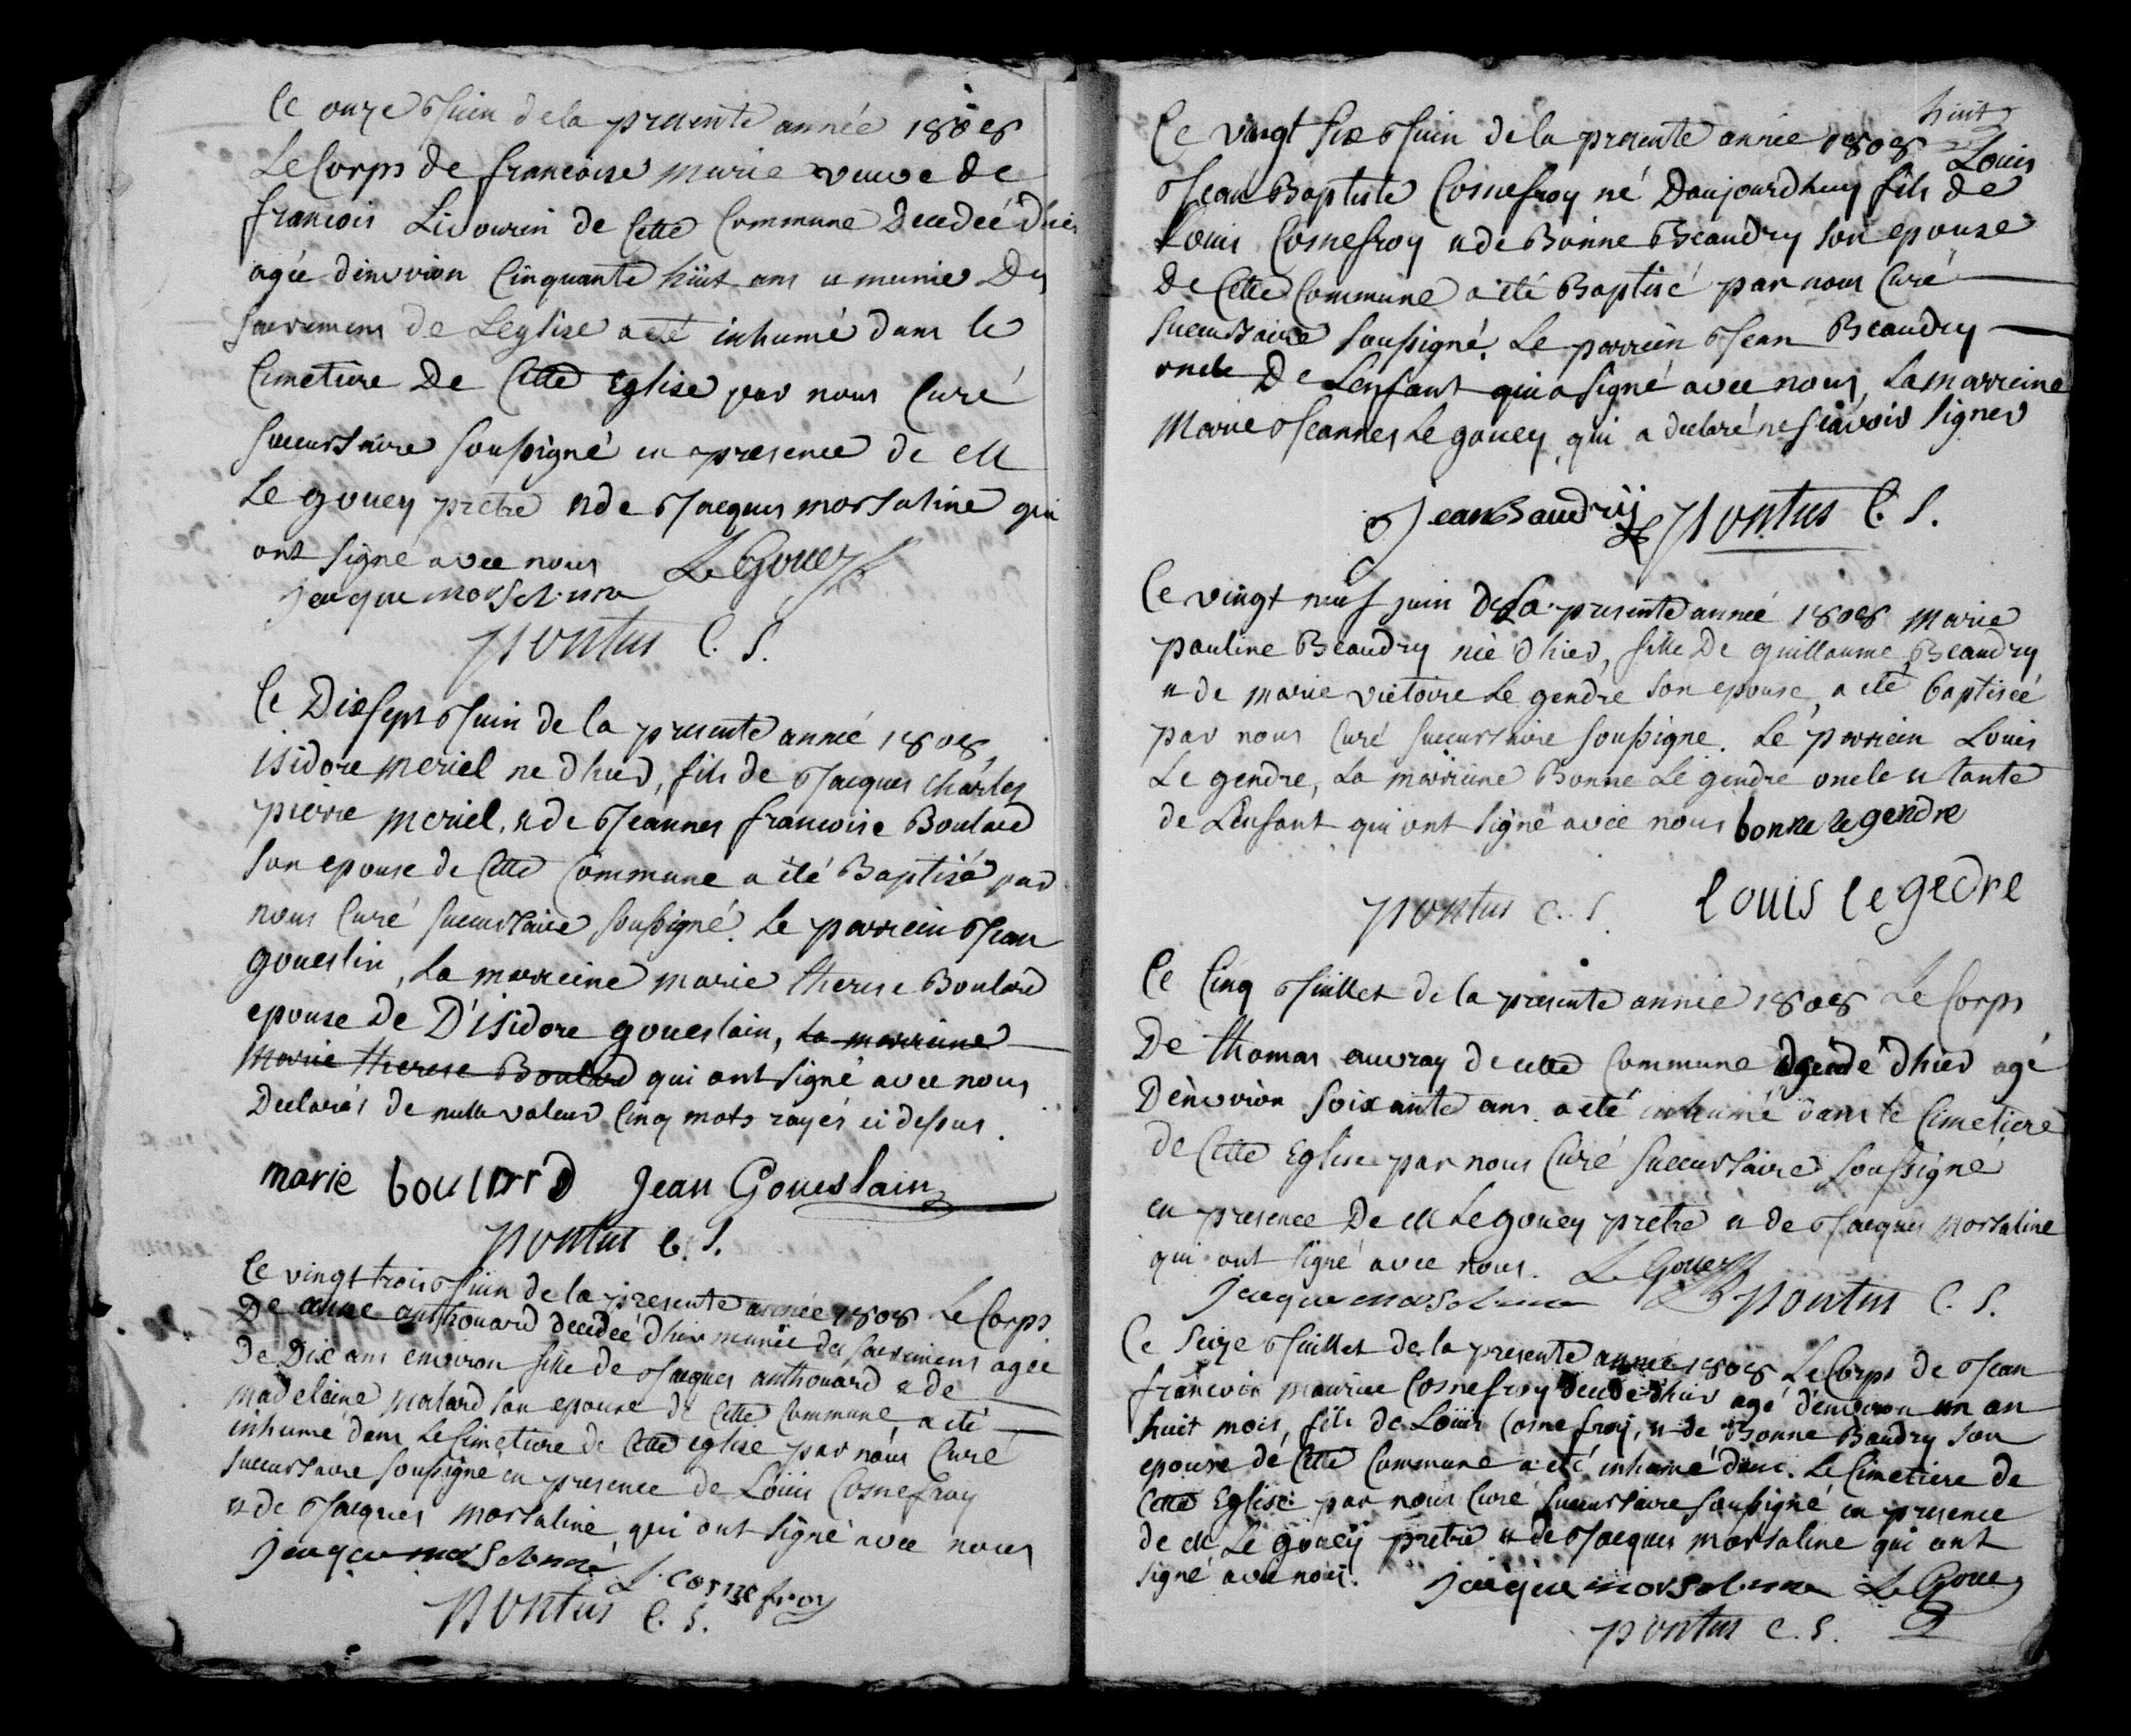 Ce onze Juin de la presente année 1808
Le Corps de francoise marie veuve de
francois Livourin de Cette Commune Decedée d'hier
agée d'environ Cinquante huit ans et munie Des
sacremens de L'eglise a eté inhumé dans le
Cimetiere De Cette Eglise par nous Curé
succursaire soussigné en presence de M
Le gouey prêtre et de Jacques morsaline qui
ont signé avec nous LeGouey
jacque morsalinne
pontus C. S.
Ce Dix sept Juin de la presente année 1808
isidore meriel né d'hier, fils de Jacques Charles
pierre meriel, et de Jeannes francoise Boulard
son epouse de Cette Commune a été Baptisé par
nous Curé succursaire soussigné. Le parrein Jean
goueslin, La marreine marie therese Boulard
epouse De D'isidore goueslain, la marreine
Marie therese Boulard qui ont signé avec nous
Declarés de nulle valeur Cinq mots rayés ci dessus.
marie boulard Jean Goueslain
pontus C. S.
Ce vingt trois Juin de la presente année 1808 Le Corps
De anne anthouard decedée d'hier munie des sacremens agée
De Dix ans environ fille de Jacques anthouard et de
madeleine malard son epouse de Cette Commune, a eté
inhumé dans Le Cimetiere de Cette eglise par nous Curé
succursaire soussigné en presence de Louis Cosnefroy
et de Jacques morsaline qui ont signé avec nous
jacque morsalinne L. cosnefroy
pontus C. S.
huit
Ce vingt six Juin de la presente année 1808 Louis
Jean Baptiste Cosnefroy né Daujourdhuy fils de
Louis Cosnefroy et de Bonne Beaudry son epouse
De Cette Commune a été Baptisé par nous Curé
succursaire soussigné. Le parrein Jean Beaudry
oncle De Lenfant qui a signé avec nous, La marreine
Marie Jeannes Le gouey qui a declaré ne sçavoir signer
Jean Baudry pontus C. S.
Ce vingt neuf juin De La presente année 1808 marie
pauline Beaudry née d'hier, fille De guillaume Beaudry
et de marie victoire Le gendre son epouse, a été baptiseé
par nous Curé succursaire soussigné. Le parrein Louis
Le gendre, La marreine Bonne Le gendre oncle et tante
de L'enfant qui ont signé avec nous bonne legendre
pontus C. S. louis le gedre
Ce Cinq Juillet de la presente année 1808 Le Corps
De thomas auvray de cette Commune decedé d'hier agé
D'environ soixante ans a été inhumé dans le Cimetiere
de Cette Eglise par nous Curé succursaire soussigné
en presence De M Le gouey prêtre et de Jacques morsaline
qui ont signé avec nous. LeGouey
jacque morsalinne pontus C. S.
Ce seize Juillet de la presente année 1808 Le Corps de Jean
francois maurice Cosnefroy decedé d'hier agé d'environ un an
huit mois, fils de Louis Cosnefroy, et de Bonne Baudry son
epouse de Cette Commune a été inhumé dans Le Cimetiere de
Cette Eglise par nous Curé succursaire soussigné en presence
de M Le gouey pretre et de Jacques morsaline qui ont
signé avec nous. jacque morsalinne LeGouey
pontus C. S.